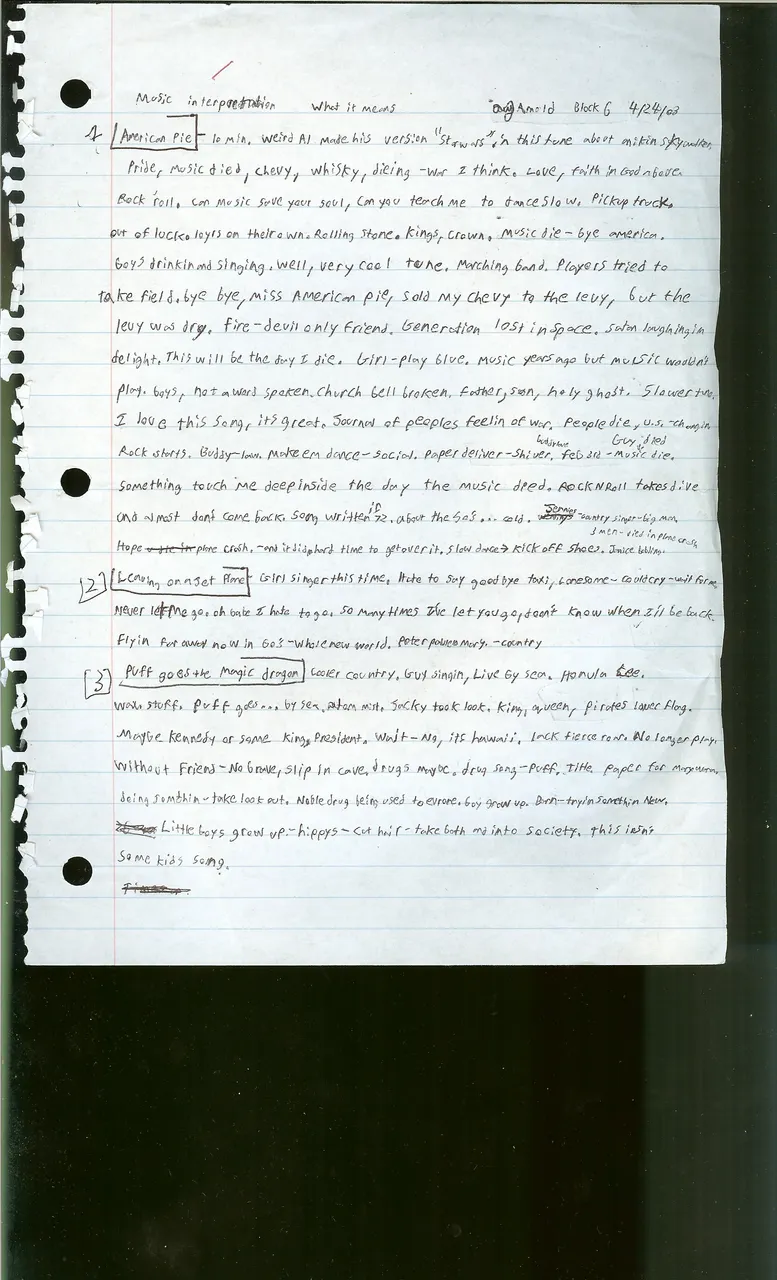 Music interpretation What it means Arnold Block G 4/24/03
1 American Pie - 10 min. Weird Al made his version "Starwars", in this tune about anikin skywalker.
Pride, Music died, chevy, whisky, dieing - war I think. Love, faith in God above.
Rock roll. can music save your soul, can you teach me to dance slow. Pickup truck.
out of luck. on their own. Rolling stone. Kings, crown. Music die - bye america.
boys drinkin and singing. well, very cool tune. Marching band. Players tried to
take field. bye bye, miss American pie, sold my chevy to the levy, but the
levy was dry. fire - devil only friend. Generation lost in space. satan laughing in
delight. This will be the day I die. Girl - play blue. music years ago but music wouldn't
play. boys, not a word spoken. Church bell broken. Father, son, holy ghost. Slower tune.
I love this song, it's great. Journal of peoples feelin of war. People die, u.s. - changin
Guy died
Rock starts. Buddy - law. Make em dance - social. Paper deliver - shiver. feb 3rd - music die.
something touch me deep inside the day the music died. ROCK N ROLL takes dive
and almost don't come back. Song written in 72. about the 50s... cold. country singer - big man.
3 men - died in plane crash
Hope plane crash. - and it did hard time to get over it. slow dance → kick off shoes. Janice
[2] Leaving on a Jet Plane - Girl singer this time. Hate to say goodbye taxi, Lonesome - could cry - wait for me.
Never let me go. oh babe I hate to go. So many times I've let you go, don't know when I'll be back.
flyin far away now in 60's - whole new world. Peter Mary. - country
[3] Puff goes the magic dragon cooler country. Guy singin, Live by sea. Honula Lee.
wax. stuff. Puff goes... by sea. mist. Jacky took look. King, queen, pirates lower flag.
Maybe Kennedy or some King, President. Wait - No, its hawaii. lack fierce roar. No longer play.
Without Friend - No brave, slip in cave. drugs maybe. drug song - Puff. Title. paper for
doing somthin - take look out. Noble drug being used to boy grow up. - tryin somethin New.
Little boys grow up. - hippys - cut hair - take both into society. this isn't
some kids song.